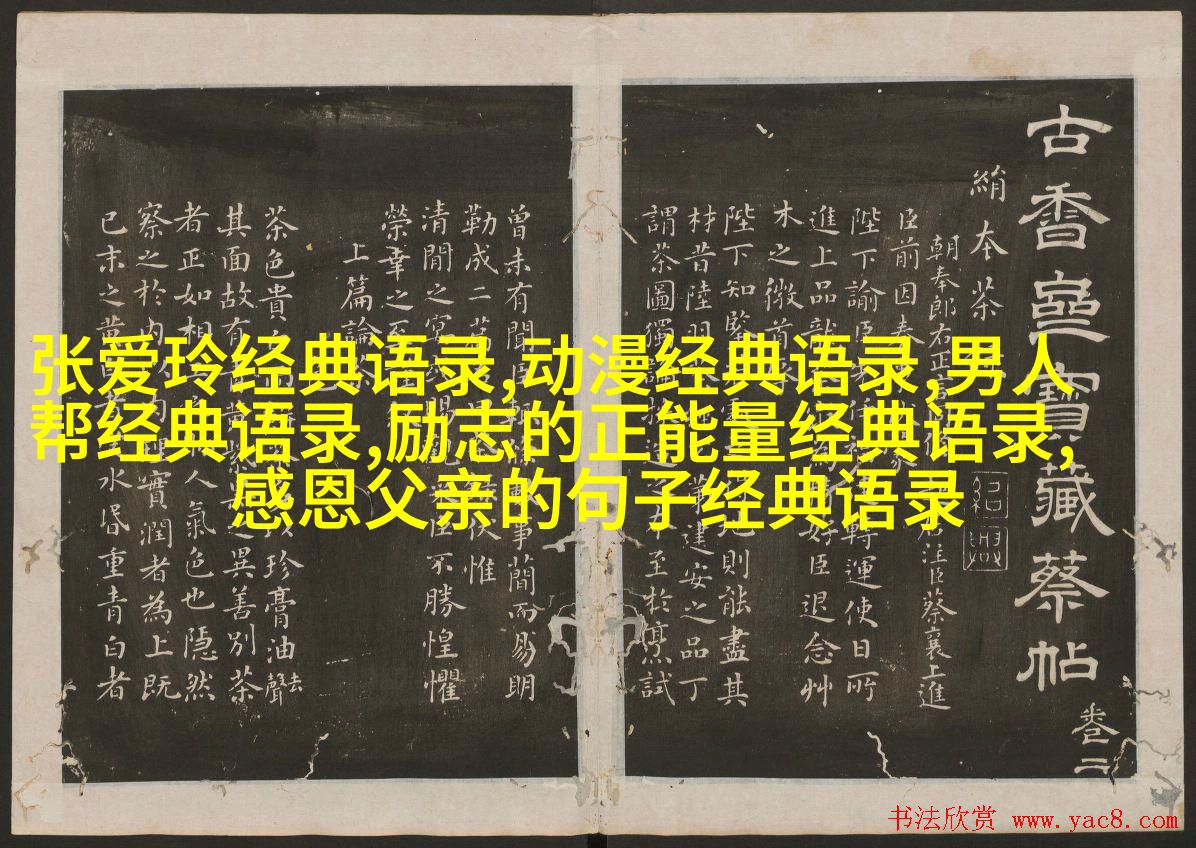 古香齋寶藏蔡帖
卷二
絹本茶
朝奉郎右正言
注臣蔡襄上進
臣前因奏
陛下諭臣
轉運使日所
進上品龍
好臣退念艸
木之微首
陛下知鑒
則能盡其
材昔陸羽
第建安之品丁
謂茶圖獨論
至於烹試
曾未有聞臣
事簡而易明
勒成二篇
伏惟
清閒之宴
賜觀
臣不勝惶懼
榮幸之至
上篇論
茶色貴
珍膏油去聲
其面故有
之異善別茶
者正如相
人氣色也隱然
察之於內
理實潤者為上既
已末之黃
水昏重青白者
张爱玲经典语录,动漫经典语录,男人
帮经典语录,励志的正能量经典语录,
感恩父亲的句子经典语录
书法欣赏 www.yac8.com